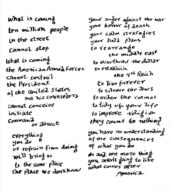 What is coming
ten million people
on the street
cannot stop
What is coming
the American Armed Forces
cannot control
the President
of the United States
and his counselors
cannot conceive
initiate
command
or direct
everything
you do
or refrain from doing
will bring us
to the same place
the place we don't know
your anger against the war
your horror of death
your calm strategies
your bold plans
to rearrange
the middle east
to overthrow the dollar
to establish
the 4th Reich
to live forever
to silence the Jews
to order the cosmos
to tidy up your life
to improve religion
they count for nothing
you have no understanding
of the consequences
of what you do
oh and one more thing
you aren't going to like
what comes after
America